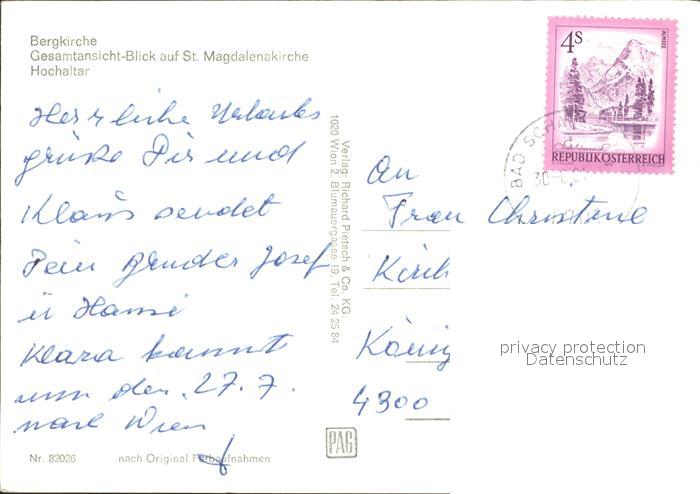 Bergkirche
Gesamtansicht-Blick auf St. Magdalenakirche
Hochaltar
Herrliche Urlaubs
grüße Dir und
Klaus sendet
Dein Bruder Josef
u Hansi
Klara kommt
um den 27. 7.
nach Wien
Nr. 82026 nach Original Farbaufnahmen
Verlag: Richard Pietsch & Co. KG.
1020 Wien 2, Blumauergasse 19, Tel. 24 25 84
PAG
4S
ALMSEE
REPUBLIK ÖSTERREICH
BAD SCHA
30
An
Frau Christine
Kirch
König
4300
privacy protection
Datenschutz